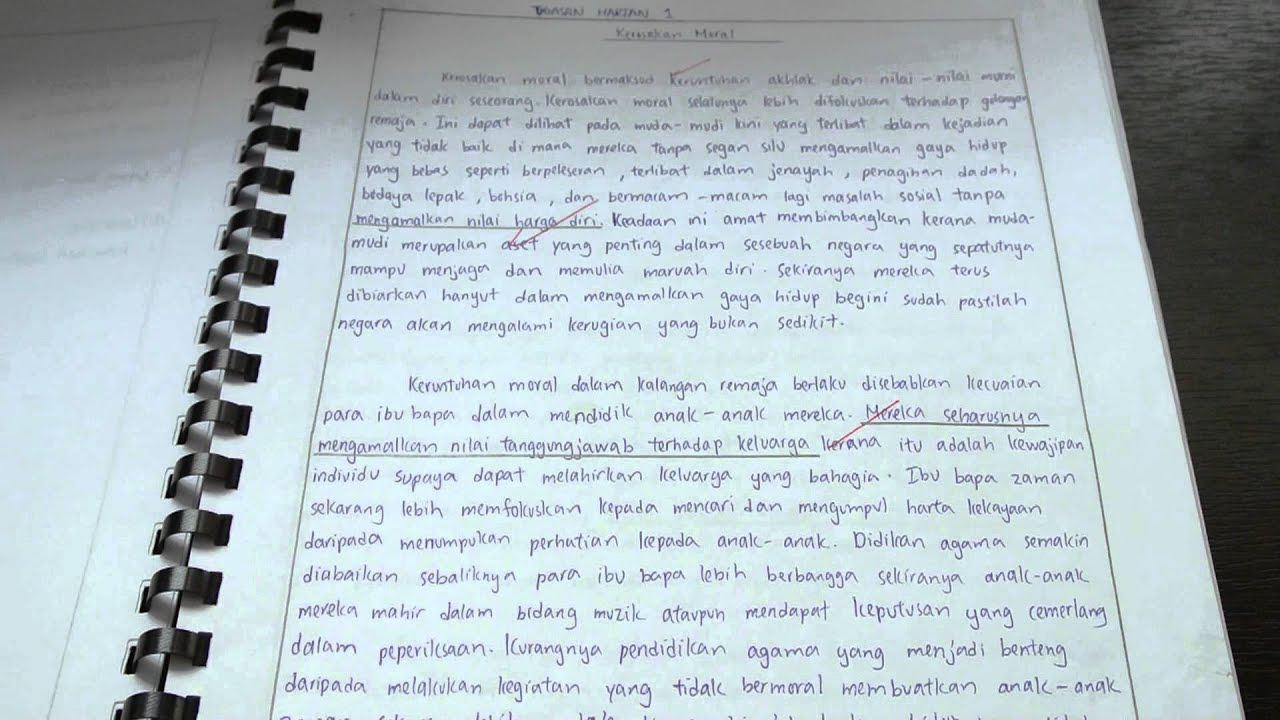 TUGASAN HARIAN 1
Kerosakan Moral
Kerosakan moral bermaksud keruntuhan akhlak dan nilai-nilai murni
dalam diri seseorang. Kerosakan moral selalunya lebih difokuskan terhadap golongan
remaja. Ini dapat dilihat pada muda-mudi kini yang terlibat dalam kejadian
yang tidak baik di mana mereka tanpa segan silu mengamalkan gaya hidup
yang bebas seperti berpeleseran, terlibat dalam jenayah, penagihan dadah,
bedaya lepak, bohsia, dan bermacam-macam lagi masalah sosial tanpa
mengamalkan nilai harga diri. Keadaan ini amat membimbangkan kerana muda-
mudi merupakan aset yang penting dalam sesebuah negara yang sepatutnya
mampu menjaga dan memulia maruah diri. Sekiranya mereka terus
dibiarkan hanyut dalam mengamalkan gaya hidup begini sudah pastilah
negara akan mengalami kerugian yang bukan sedikit.
Keruntuhan moral dalam kalangan remaja berlaku disebabkan kecuaian
para ibu bapa dalam mendidik anak-anak mereka. Mereka seharusnya
mengamalkan nilai tanggungjawab terhadap keluarga kerana itu adalah kewajipan
individu supaya dapat melahirkan keluarga yang bahagia. Ibu bapa zaman
sekarang lebih memfokuskan kepada mencari dan mengumpul harta kekayaan
daripada menumpukan perhatian kepada anak-anak. Didikan agama semakin
diabaikan sebaliknya para ibu bapa lebih berbangga sekiranya anak-anak
mereka mahir dalam bidang muzik ataupun mendapat keputusan yang cemerlang
dalam peperiksaan. Kurangnya pendidikan agama yang menjadi benteng
daripada melakukan kegiatan yang tidak bermoral membuatkan anak-anak